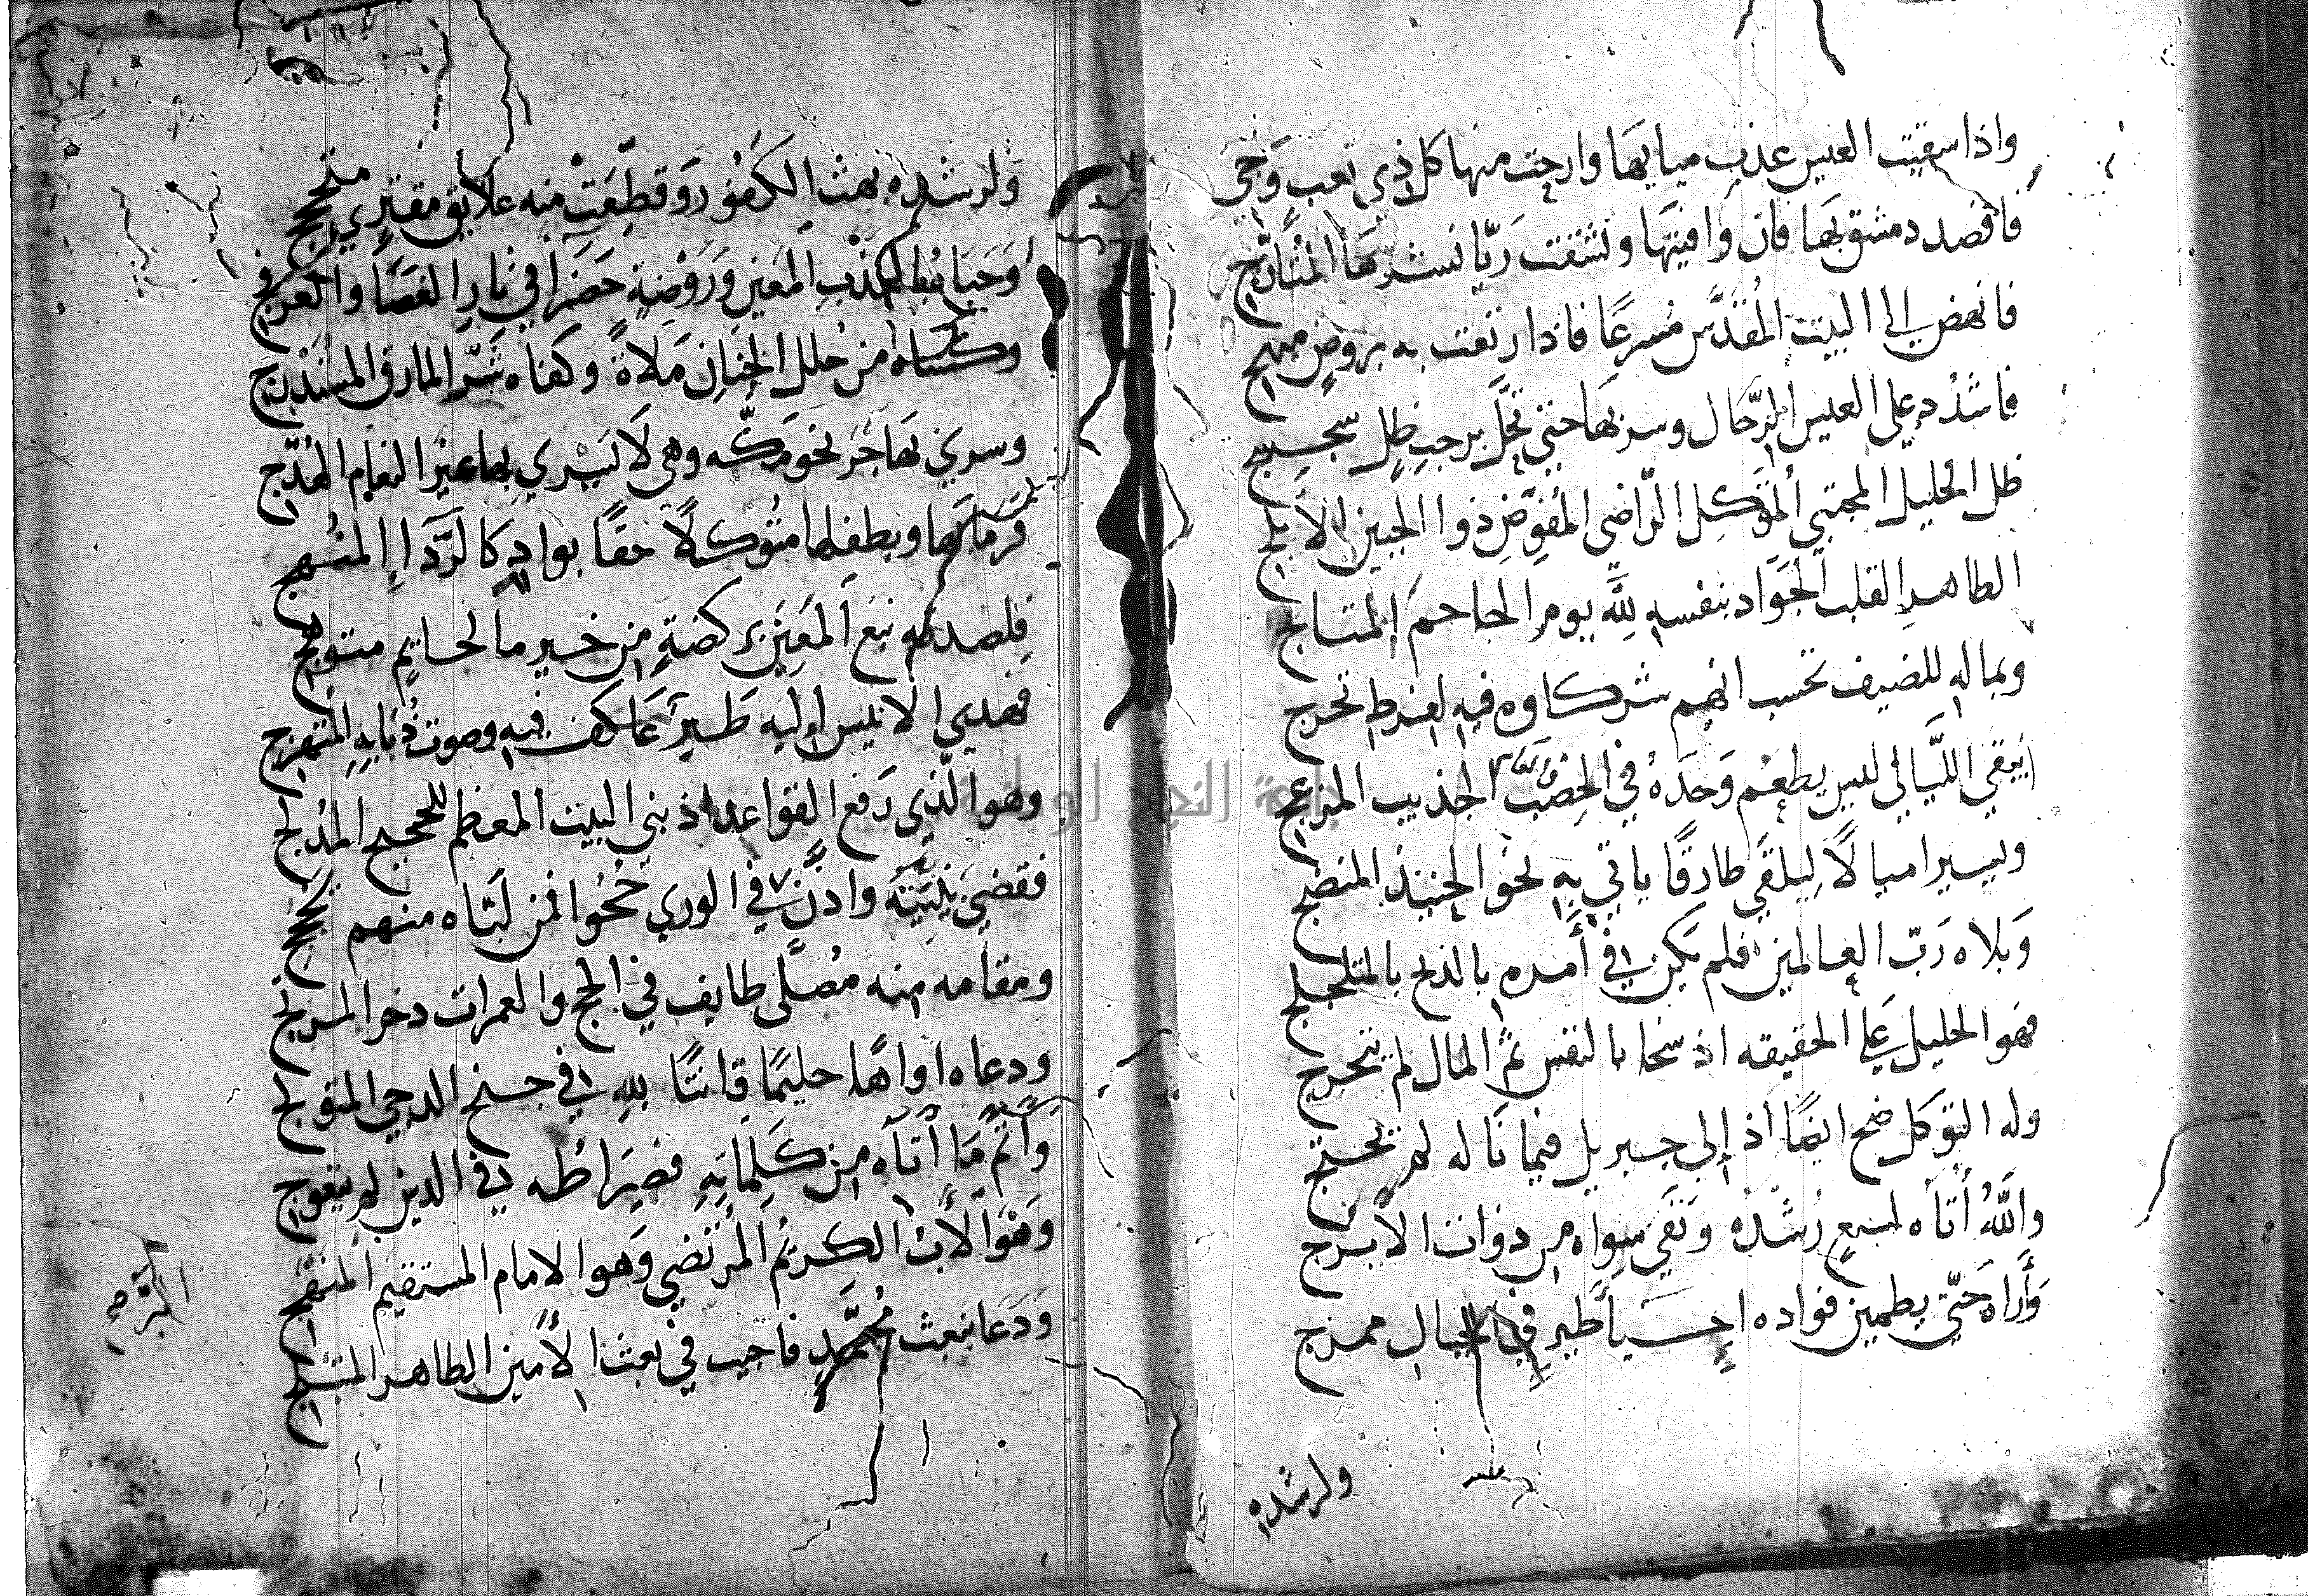 واذا سقيت العيس عذب مياهها وارحت منها كل ذي تعب وجي
فاقصد دمشق بها فان وافيتها ونشقت ريا نشرها المتارج
فانهض الى البيت المقدس مسرعا فاذا رتعت به بروض مبهج
فاشدد على العيس الرحال وسر بها حتى تحل برحب ظل سجسج
ظل الخليل المجتبى المتوكل الراضي المفوض ذوا الجبين الابلج
الطاهر القلب الجواد بنفسه لله يوم الجاحم المتاجج
وبماله للضيف تحسب انهم شركاوه فيه لفرط تحرج
يبقي الليالي ليس يطعم وحده في الخصب الجديب المزعج
ويسير اميالا ليلقى طارقا ياتي به نحو الحنيذ المنضج
وبلاه رب العالمين فلم يكن في أمره بالذبح بالمتلجلج
فهو الخليل على الحقيقه اذ سخا بالنفس ثم المال لم تتحرج
وله التوكل صح ايضا اذ إلى جبريل فيما ناله لم يحتج
والله أتاه رشده ونفى سواه من ذوات الابرج
وأراه حتى يطمين فواده احيا طير في الجبال ممزج
ولرشده
ولرشده بهت الكفور وقطعت منه علايق مفتري
وحباه بالعذب المعين وروضة خضرا في نار الغضا والعرفج
وكساه من حلل الجنان ملاة وكفاه شر المارق المستدرج
وسرى بهاجر نحو مكه وهي لا يسري بها غير النعام الهدج
فرما بها وبطفلها متوكلا حقا بواد كالردا المنهج
فلصدقه نبع المعين بركضة من خير ما لحايم متوهج
فهدى الانيس اليه طير عاكف فيه وصوت ذبابه المتهزج
وهو الذي رفع القواعد اذ بني البيت المعظم للحجيج المدلج
فقضى بنيته واذن في الورى حجوا فمن لباه منهم
ومقامه منه مصلى طايف في الحج والعمرات ذخر المرتجي
ودعاه اواها حليما قانتا لله في جنح الدجى المتولج
وأتم ما أتاه من كلماته فصراطه في الدين لم يتعوج
وهو الأب الكريم المرتضى وهو الامام المستقيم المنهج
ودعا ببعث محمد فاجيب في بعث الأمين الطاهر المتبلج